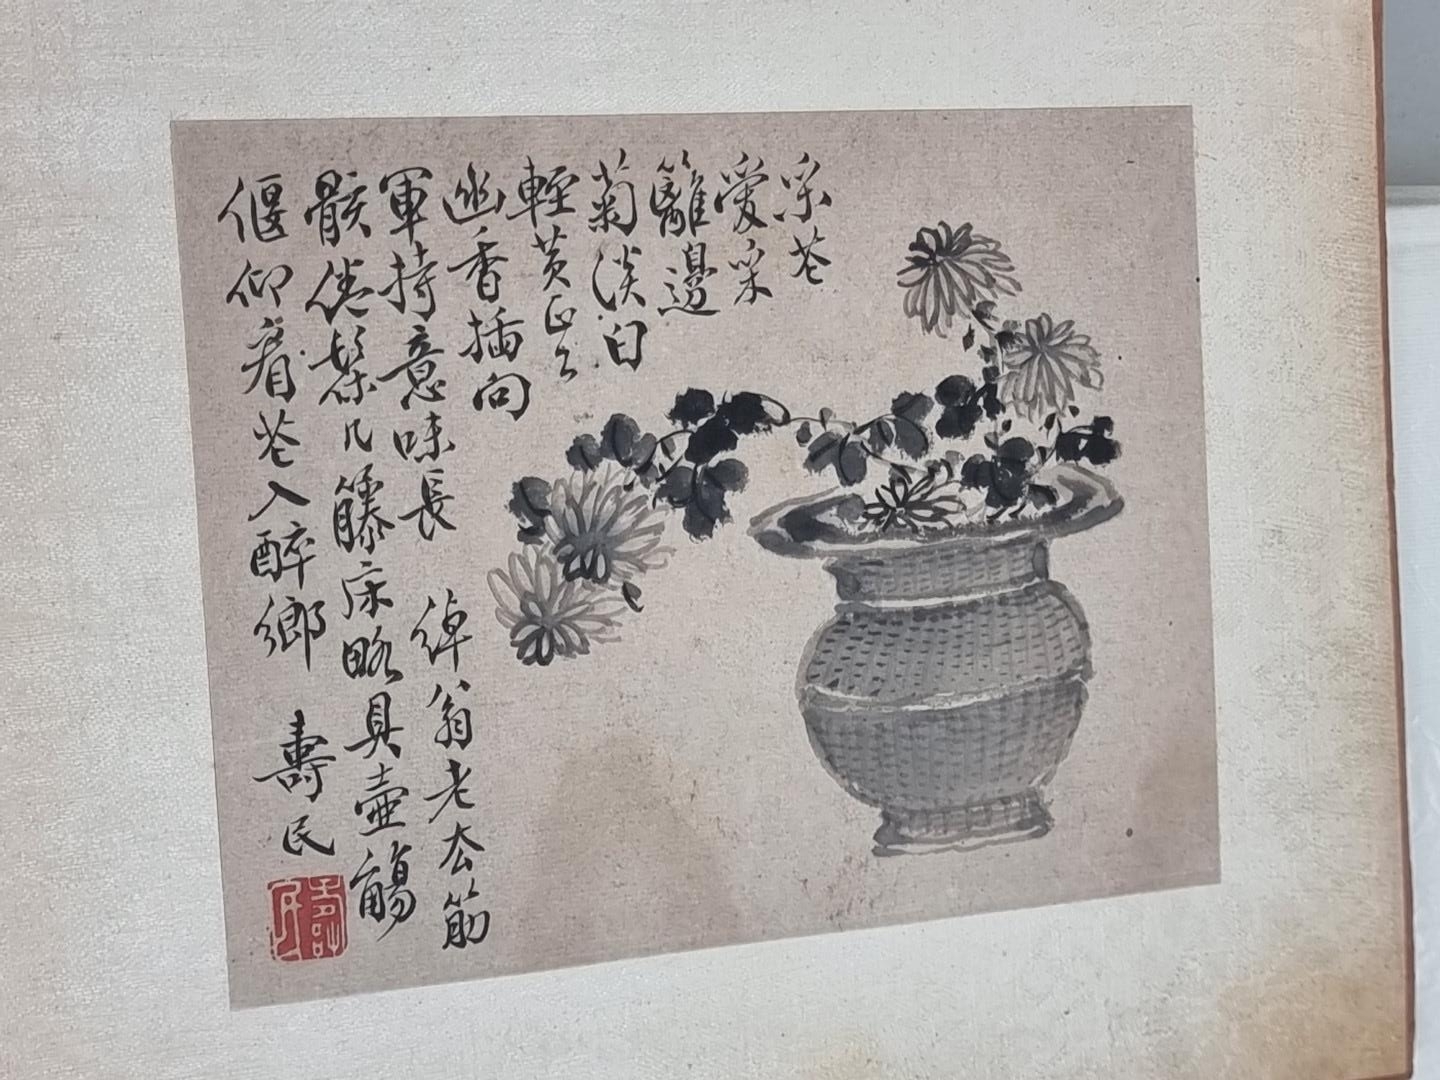 采花
愛采
籬邊
菊淡白
輕黃
幽香插向
軍持意味長 綽翁老厺筋
骸倦髹几籐床略具壺觴
偃仰看花入醉鄉 壽民
壽民